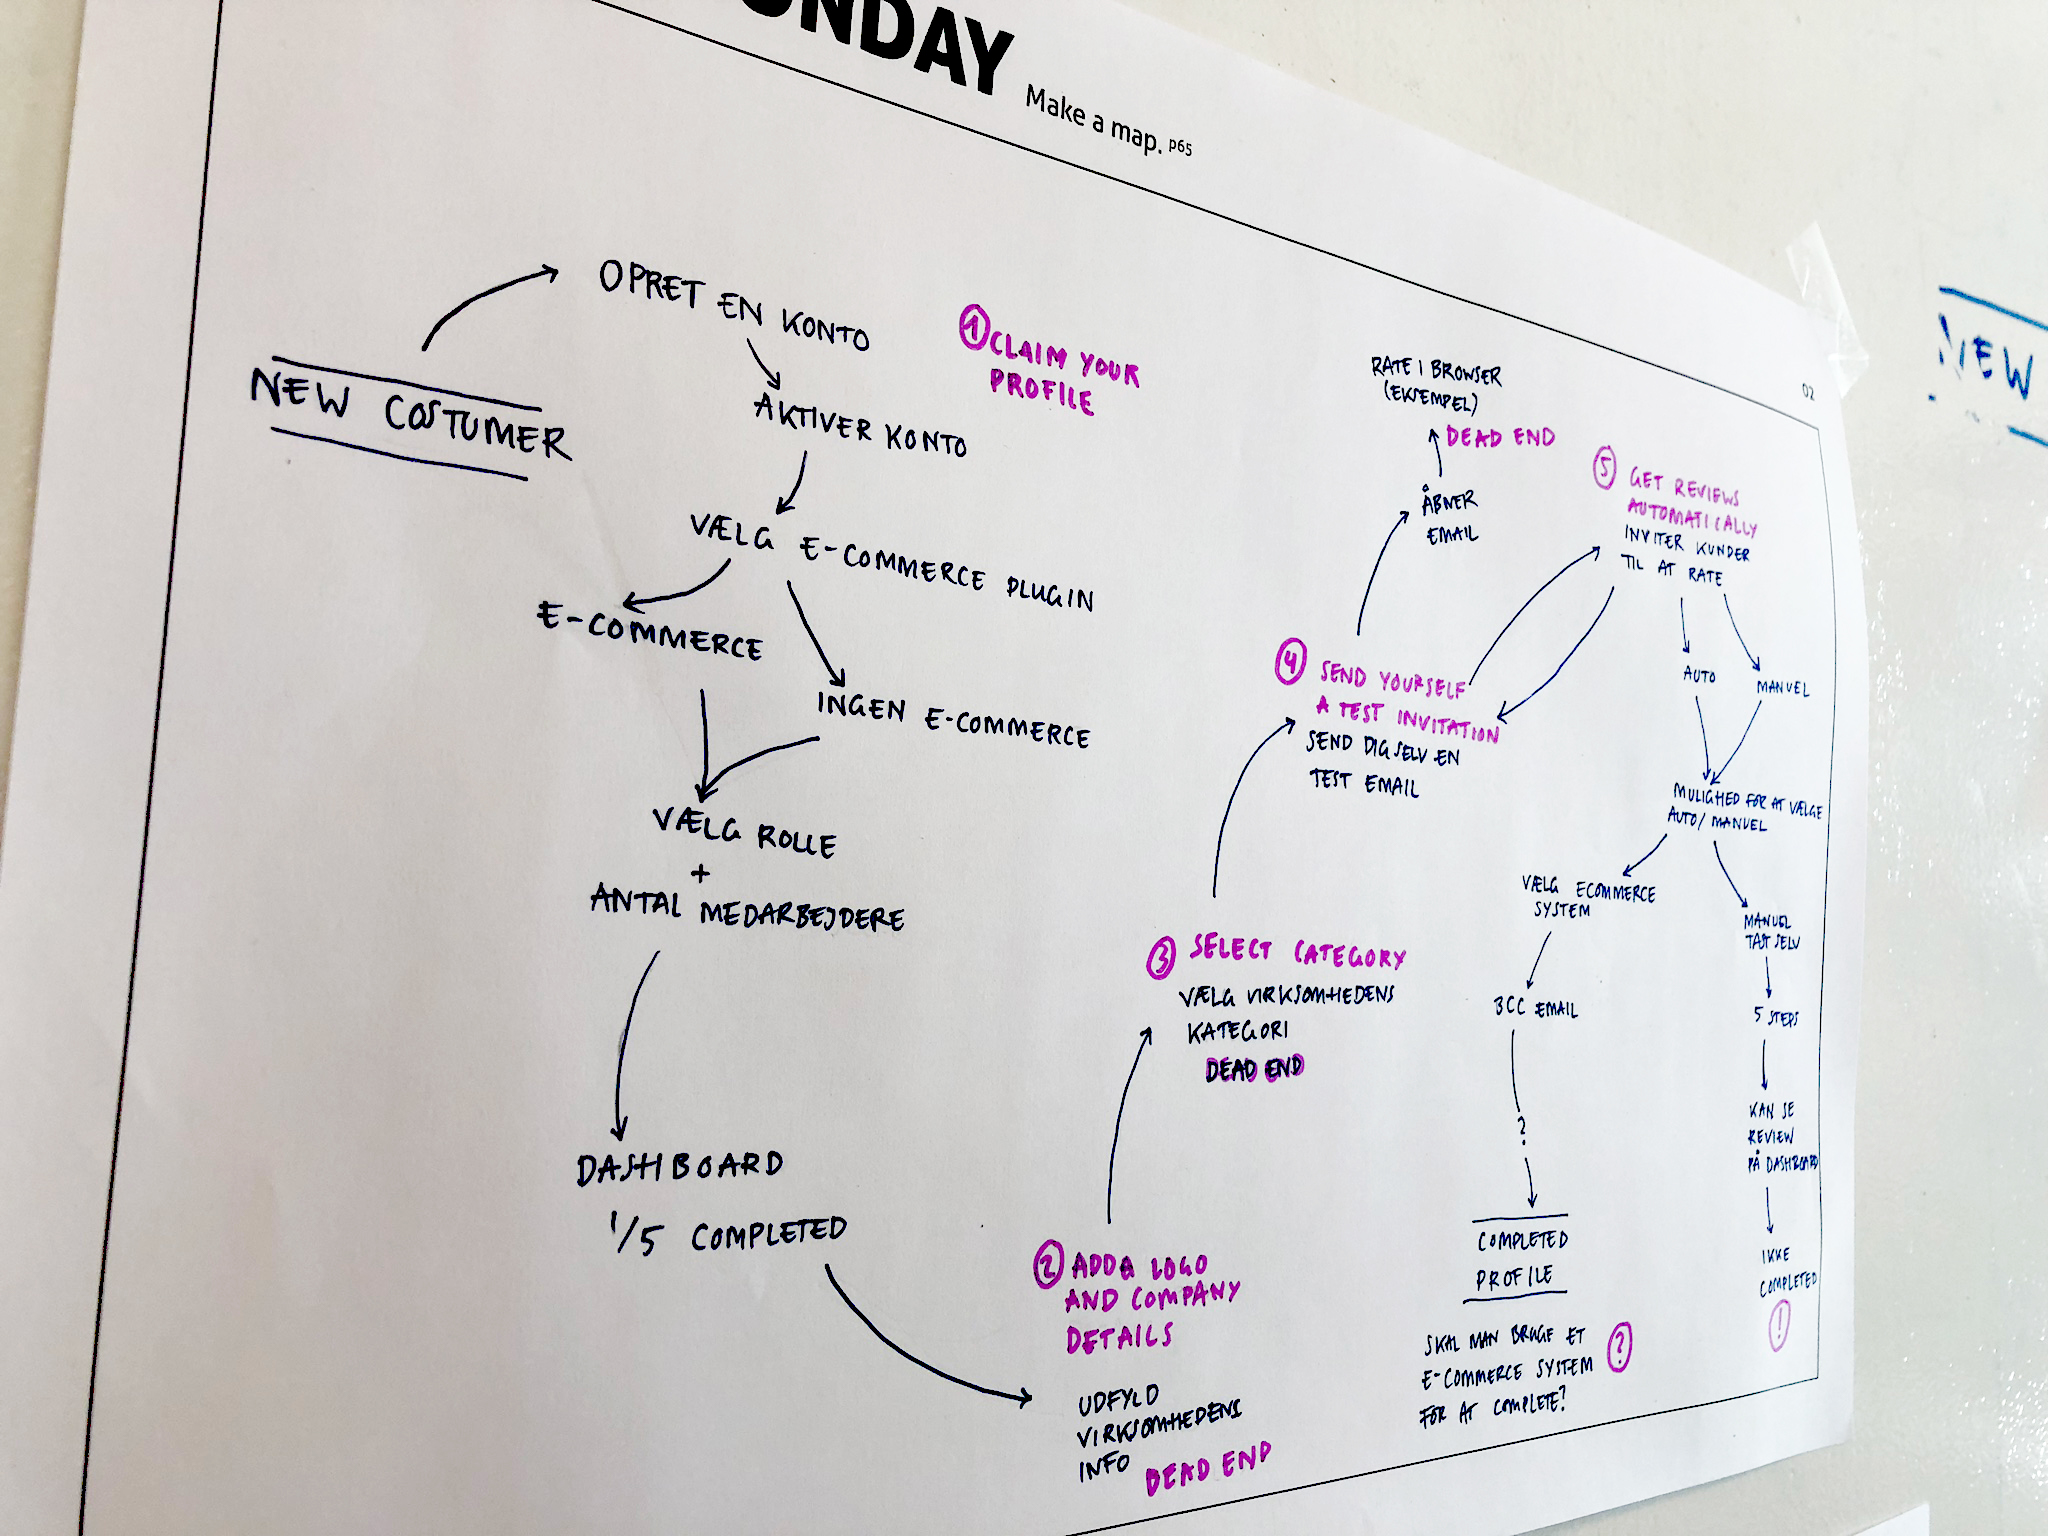 Make a map. p65
02
NEW COSTUMER
OPRET EN KONTO
① CLAIM YOUR
PROFILE
AKTIVER KONTO
VÆLG E-COMMERCE PLUGIN
E-COMMERCE
INGEN E-COMMERCE
VÆLG ROLLE
+
ANTAL MEDARBEJDERE
DASHBOARD
1/5 COMPLETED
② ADD A LOGO
AND COMPANY
DETAILS
UDFYLD
VIRKSOMHEDENS
INFO
DEAD END
③ SELECT CATEGORY
VÆLG VIRKSOMHEDENS
KATEGORI
DEAD END
④ SEND YOURSELF
A TEST INVITATION
SEND DIG SELV EN
TEST EMAIL
ÅBNER
EMAIL
RATE I BROWSER
(EKSEMPEL)
DEAD END
⑤ GET REVIEWS
AUTOMATICALLY
INVITER KUNDER
TIL AT RATE
AUTO
MANUEL
MULIGHED FOR AT VÆLGE
AUTO/MANUEL
VÆLG ECOMMERCE
SYSTEM
BCC EMAIL
?
COMPLETED
PROFILE
SKAL MAN BRUGE ET
E-COMMERCE SYSTEM
FOR AT COMPLETE?
?
MANUEL
TAST SELV
5 STEPS
KAN SE
REVIEW
PÅ DASHBOARD
IKKE
COMPLETED
!
NEW